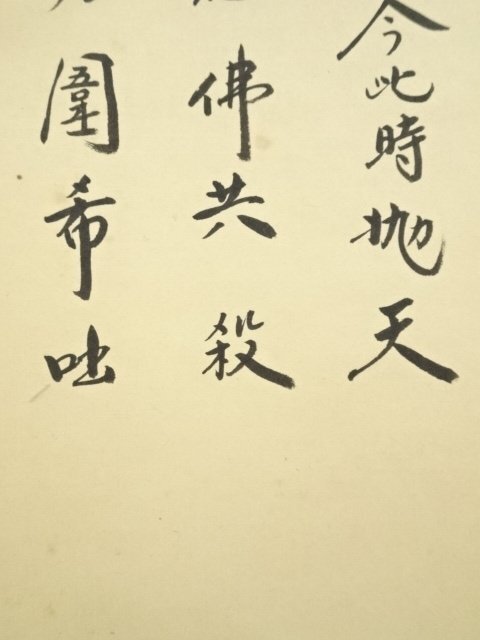 今此時抛天
佛共殺
圍希咄